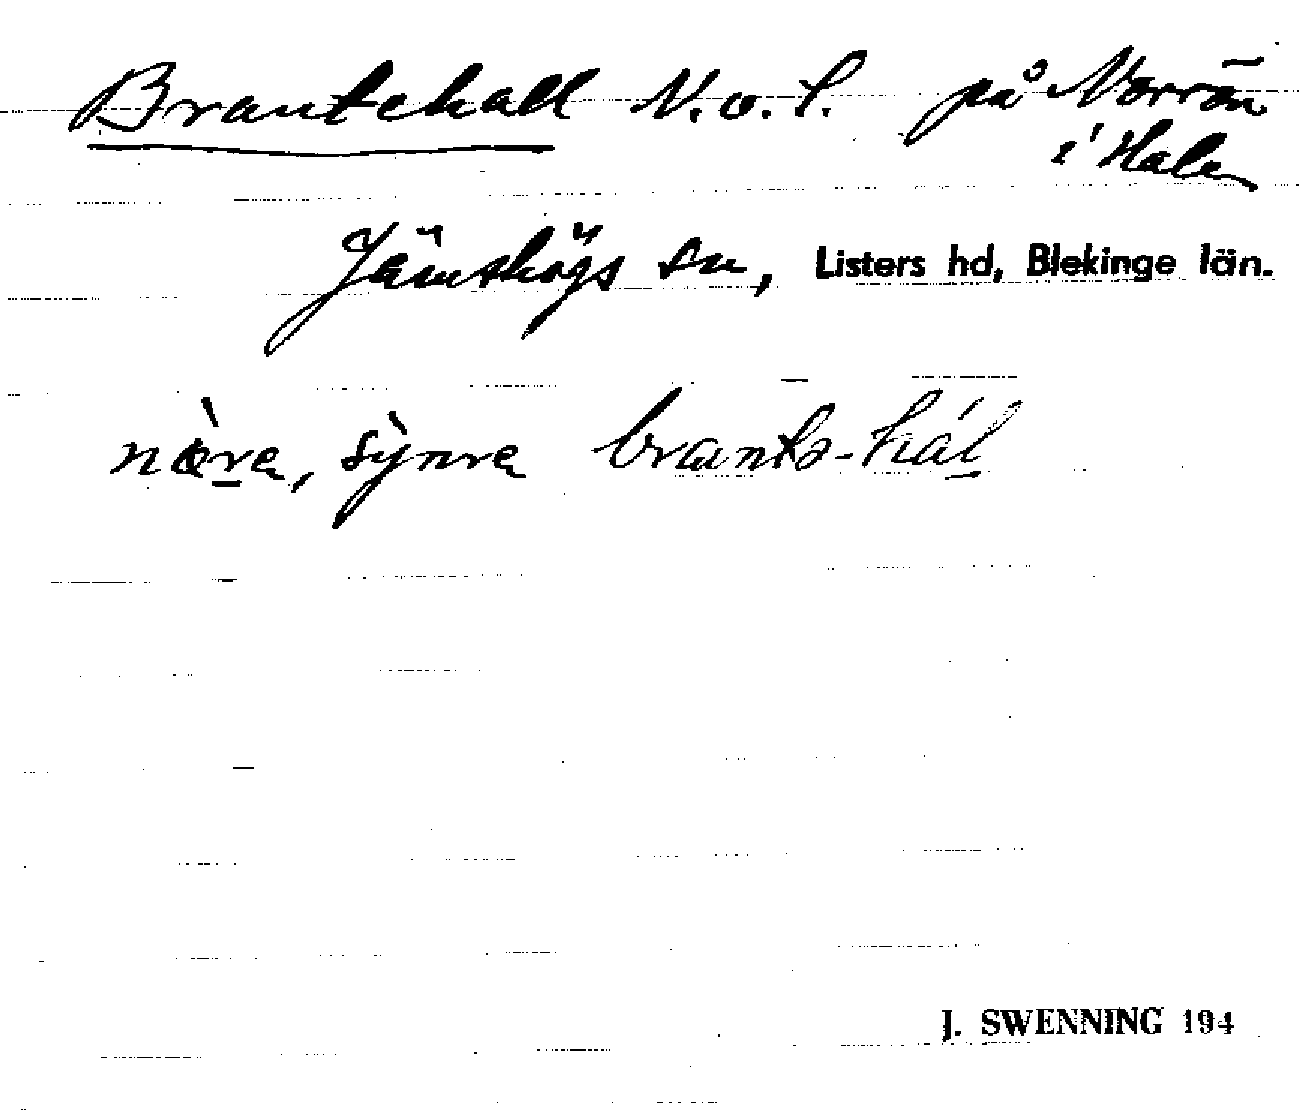 Brantehall N. o. S. på Norrön
i Halen
Jämshögs sn, Listers hd, Blekinge län.
nœ̀re, sỳnre brants-hál
J. SWENNING 194